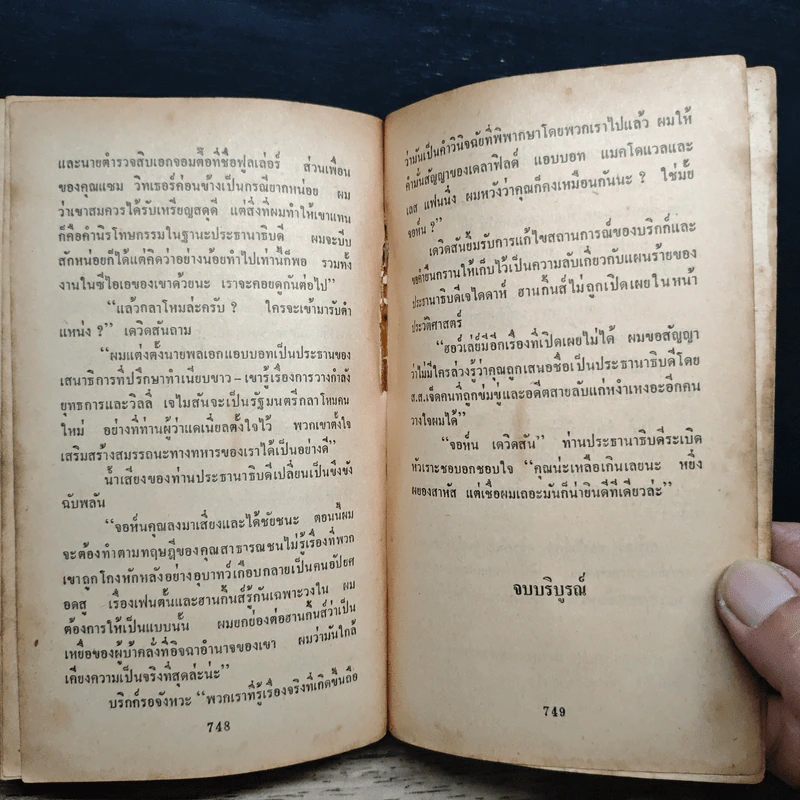 และนายตำรวจสิบเอกจอมดื้อที่ชื่อฟูลเล่อร์ ส่วนเพื่อน
ของคุณแซม วิทเธอร์ค่อนข้างเป็นกรณียากหน่อย ผม
ว่าเขาสมควรได้รับเหรียญสดุดี แต่สิ่งที่ผมทำให้เขาแทน
ก็คือคำนิรโทษกรรมในฐานะประธานาธิบดี ผมจะบีบ
สักหน่อยก็ได้แต่คิดว่าอย่างน้อยทำไปเท่านี้ก็พอ รวมทั้ง
งานในซีไอเอของเขาด้วยนะ เราจะคอยดูกันต่อไป”
“แล้วกลาโหมล่ะครับ ? ใครจะเข้ามารับตำ
แหน่ง ?” เดวิดสันถาม
“ผมแต่งตั้งนายพลเอกแอบบอทเป็นประธานของ
เสนาธิการที่ปรึกษาทำเนียบขาว–เขารู้เรื่องการวางกำลัง
ยุทธการและวิลลี่ เจไมสันจะเป็นรัฐมนตรีกลาโหมคน
ใหม่ อย่างที่ท่านผู้ว่าแดเนี่ยลตั้งใจไว้ พวกเขาตั้งใจ
เสริมสร้างสมรรถนะทางทหารของเราได้เป็นอย่างดี”
น้ำเสียงของท่านประธานาธิบดีเปลี่ยนเป็นขึงขัง
ฉับพลัน
“จอห์นคุณลงมาเสี่ยงและได้ชัยชนะ ตอนนี้ผม
จะต้องทำตามทฤษฎีของคุณสาธารณชนไม่รู้เรื่องที่พวก
เขาถูกโกงหักหลังอย่างอุบาทว์เกือบกลายเป็นคนอัปยศ
อดสู เรื่องเฟนตั้นและฮานกิ้นส์รู้กันเฉพาะวงใน ผม
ต้องการให้เป็นแบบนั้น ผมยกย่องต่อฮานกิ้นส์ว่าเป็น
เหยื่อของผู้บ้าคลั่งที่อิจฉาอำนาจของเขา ผมว่ามันใกล้
เคียงความเป็นจริงที่สุดล่ะน่ะ”
บริกก์รอจังหวะ “พวกเราที่รู้เรื่องจริงที่เกิดขึ้นถือ
748
ว่ามันเป็นคำวินิจฉัยที่พิพากษาโดยพวกเราไปแล้ว ผมให้
คำมั่นสัญญาของเดลาฟิลด์ แอบบอท แมคโดแวลและ
เลส แฟนนิ่ง ผมหวังว่าคุณก็คงเหมือนกันนะ ? ใช่มั้ย
จอห์น ?”
เดวิดสันยิ้มรับการแก้ไขสถานการณ์ของบริกก์และ
ขอคำยืนกรานให้เก็บไว้เป็นความลับเกี่ยวกับแผนร้ายของ
ประธานาธิบดีเจไดดาห์ ฮานกิ้นส์ไม่ถูกเปิดเผยในหน้า
ประวัติศาสตร์
“ฮอว์เล่ย์มีอีกเรื่องที่เปิดเผยไม่ได้ ผมขอสัญญา
ว่าไม่มีใครล่วงรู้ว่าคุณถูกเสนอชื่อเป็นประธานาธิบดีโดย
ส.ส.เจ็ดคนที่ถูกข่มขู่และอดีตสายลับแก่หง่าเหงอะอีกคน
วางใจผมได้”
“จอห์น เดวิดสัน” ท่านประธานาธิบดีระเบิด
หัวเราะชอบอกชอบใจ “คุณน่ะเหลือเกินเลยนะ หยิ่ง
ผยองสาหัส แต่เชื่อผมเถอะมันก็น่ายินดีทีเดียวล่ะ”
จบบริบูรณ์
749